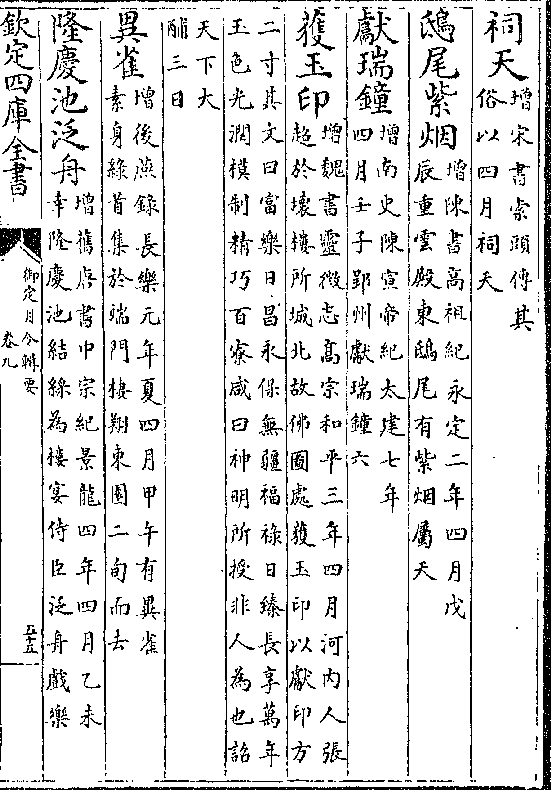 祠天增宋書索頭傳其
俗以四月祠天
鴟尾紫烟增陳書高祖紀永定二年四月戊
辰重雲殿東鴟尾有紫烟屬天
獻瑞鐘增南史陳宣帝紀太建七年
四月壬子郢州獻瑞鐘六
獲玉印增魏書靈徵志高宗和平三年四月河内人張
超於壊樓所城北故佛圖處獲玉印以獻印方
二寸其文曰富樂日昌永保無疆福祿日臻長享萬年
玉色光潤模制精巧百寮咸曰神明所授非人為也詔
天下大
酺三日
異雀增後燕錄長樂元年夏四月甲午有異雀
素身綠首集於端門棲翔東園二旬而去
隆慶池泛舟增舊唐書中宗紀景龍四年四月乙未
幸隆慶池結綵為樓宴侍臣泛舟戲樂
欽定四庫全書
御定月令輯要
卷九
五十五